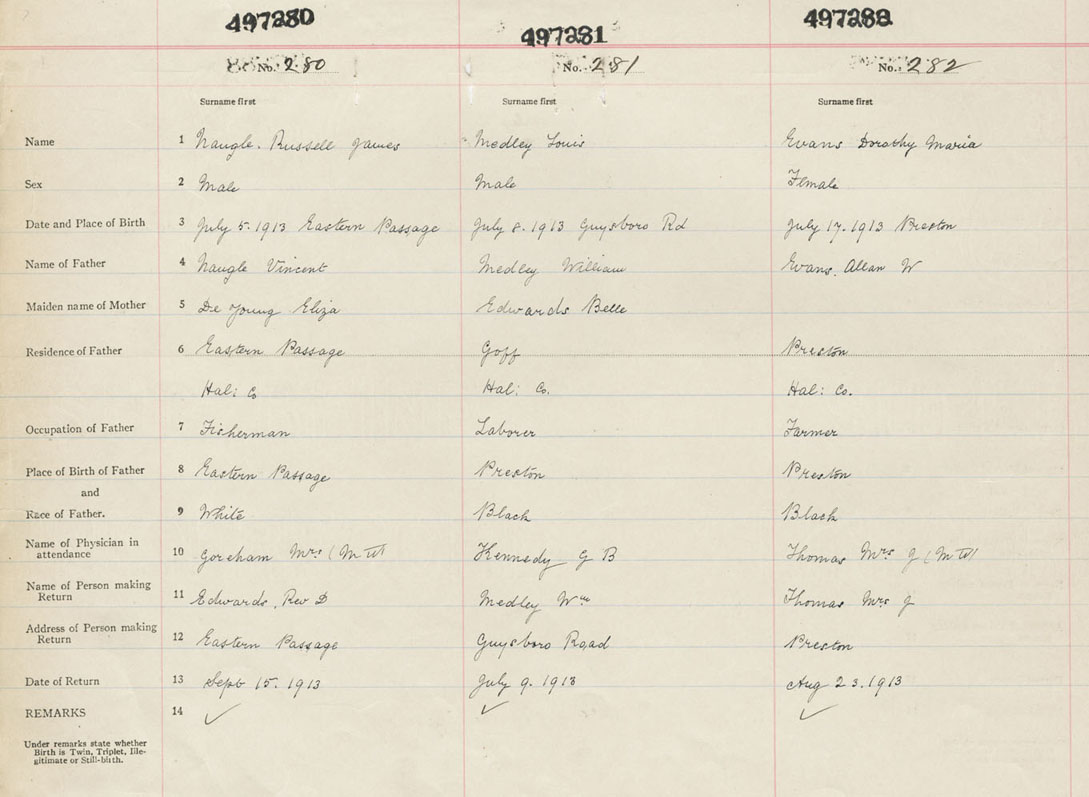 497280 497281 497282
No. 280 No. 281 No. 282
Surname first Surname first Surname first
Name 1 Naugle. Russell James Medley Louis Evans Dorothy Maria
Sex 2 Male Male Female
Date and Place of Birth 3 July 5. 1913 Eastern Passage July 8. 1913 Guysboro Rd July 17. 1913 Preston
Name of Father 4 Naugle Vincent Medley William Evans. Allan W
Maiden name of Mother 5 De Young Eliza Edwards Belle
Residence of Father 6 Eastern Passage Goff Preston
Hal: Co Hal: Co. Hal: Co.
Occupation of Father 7 Fisherman Laborer Farmer
Place of Birth of Father 8 Eastern Passage Preston Preston
and
Race of Father. 9 White Black Black
Name of Physician in
attendance 10 Goreham Mrs (M W) Kennedy G B Thomas Mrs J (M W)
Name of Person making
Return 11 Edwards, Rev D Medley Wm Thomas Mrs J
Address of Person making
Return 12 Eastern Passage Guysboro Road Preston
Date of Return 13 Sept 15. 1913 July 9. 1913 Aug 23. 1913
REMARKS 14 ✓ ✓ ✓
Under remarks state whether
Birth is Twin, Triplet, Ille-
gitimate or Still-birth.